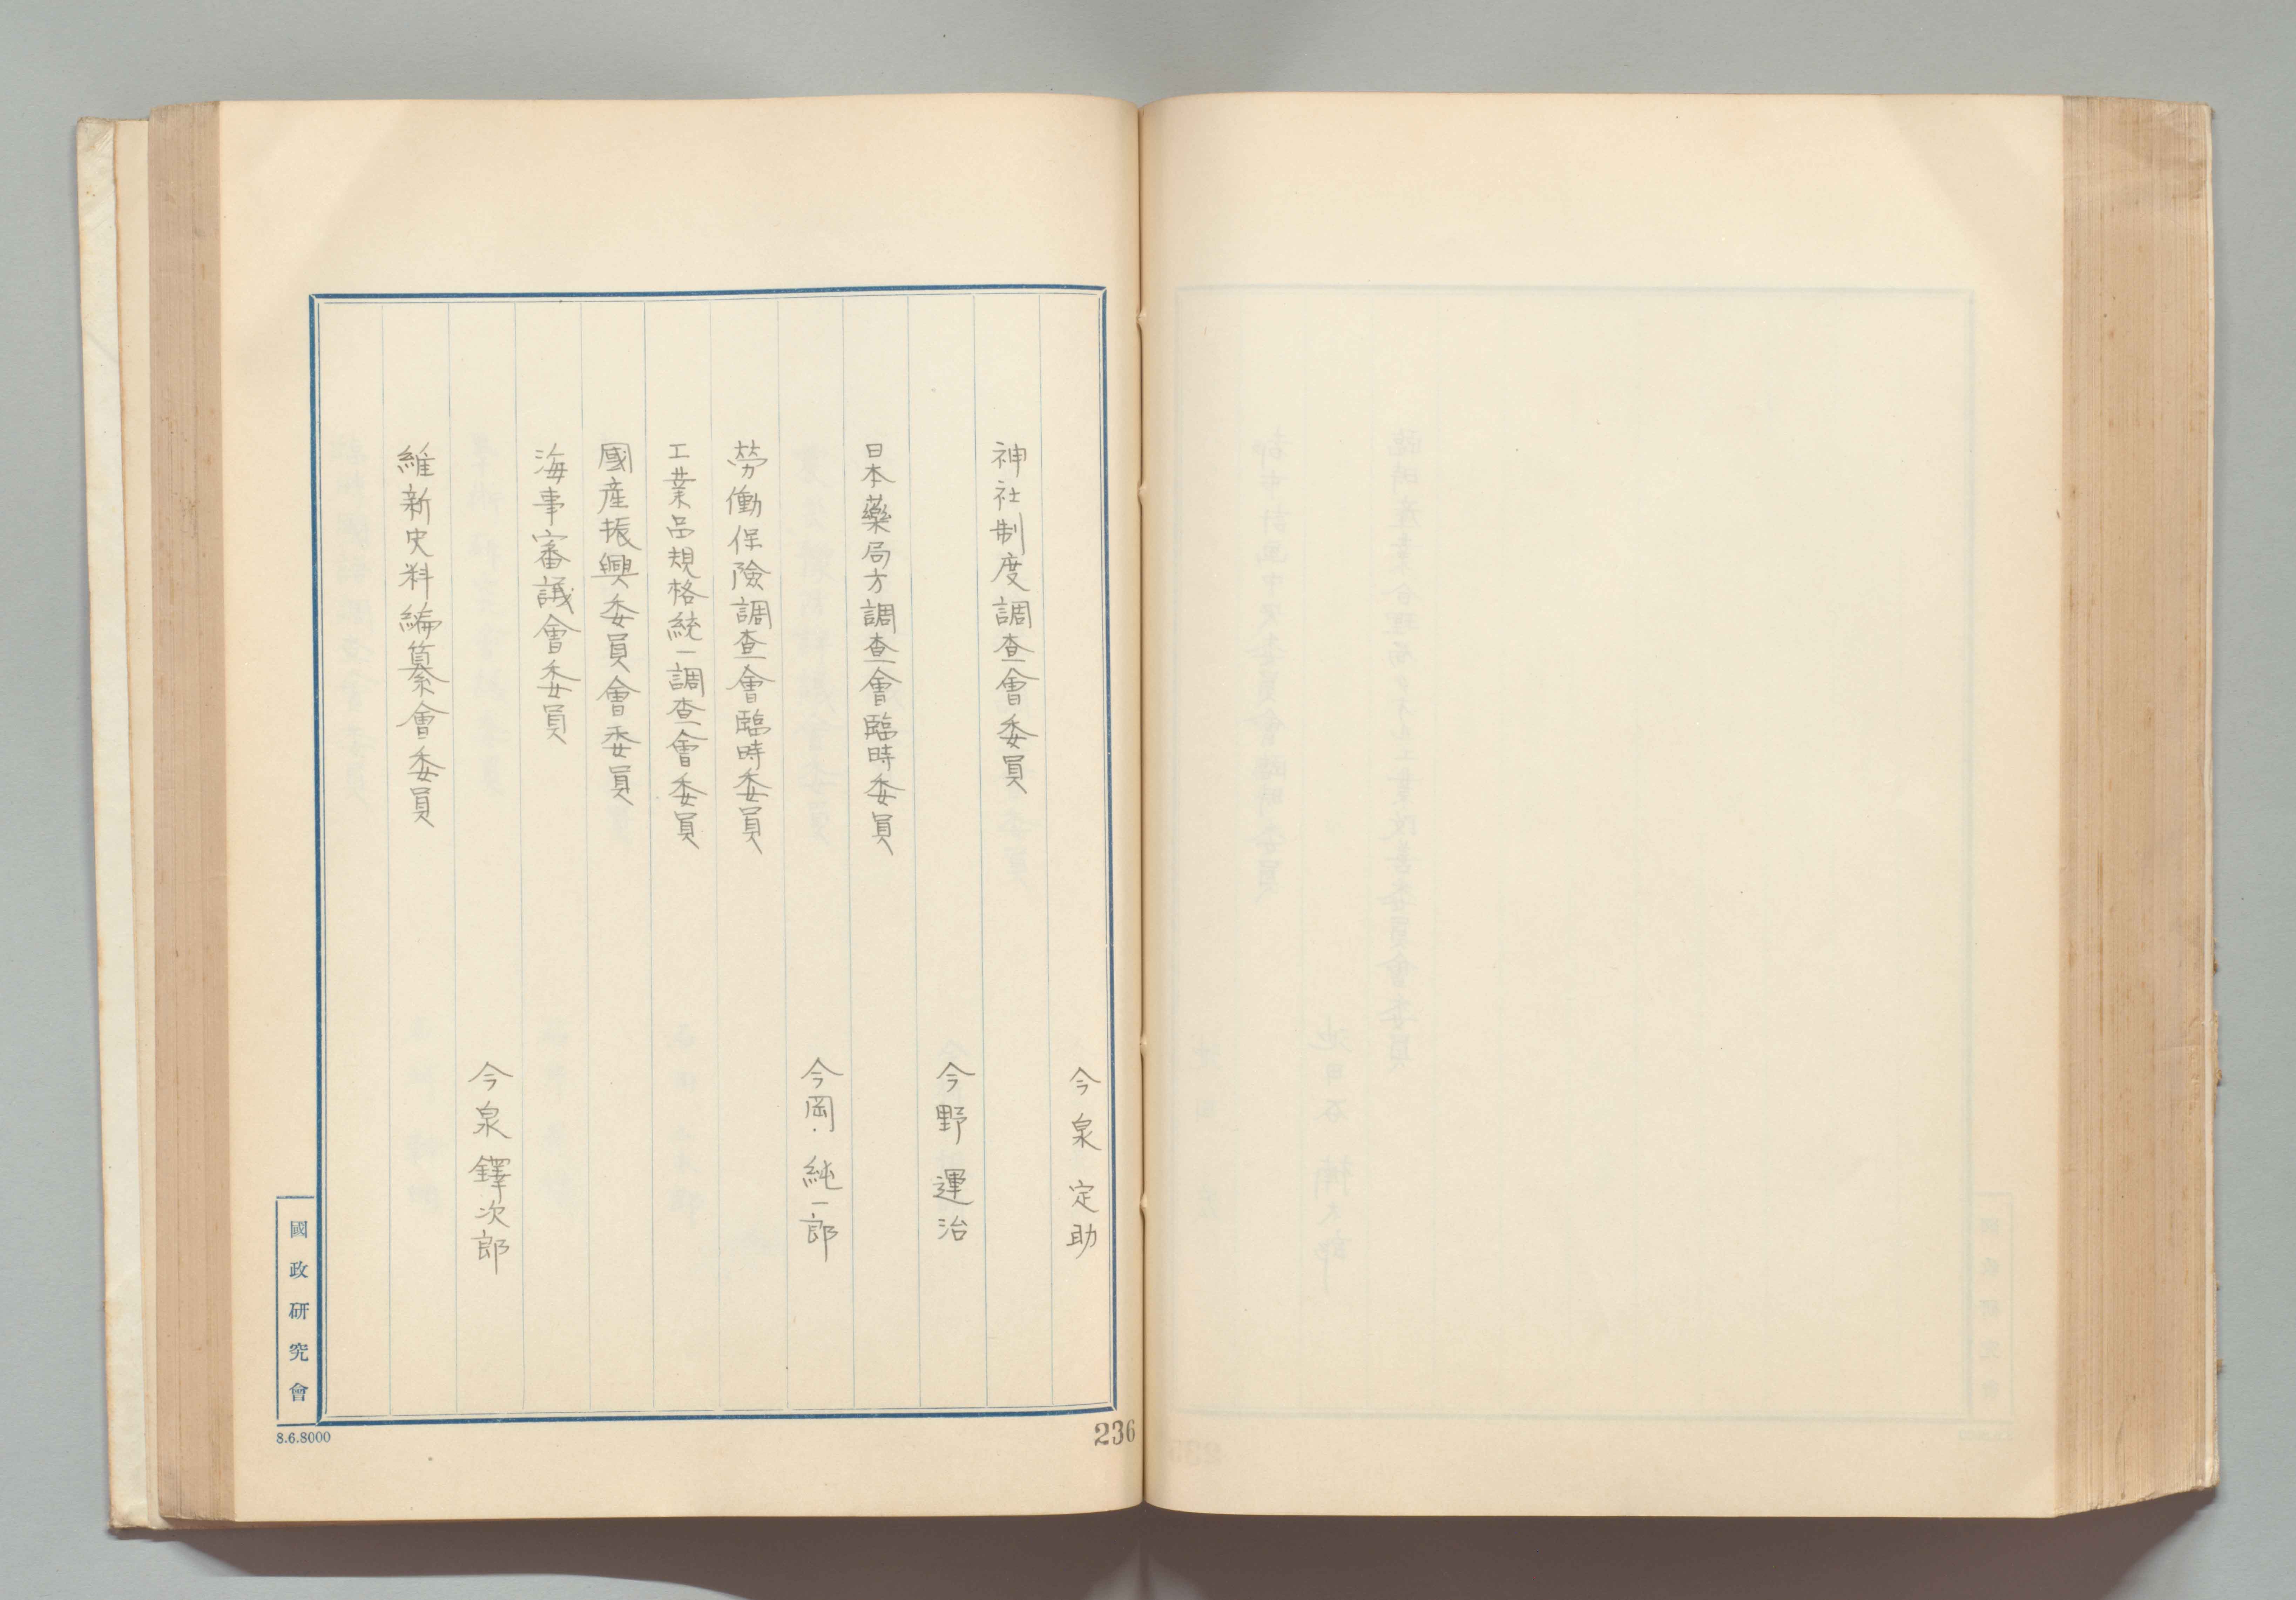 今泉定助
神社制度調査會委員
今野運治
日本藥局方調査會臨時委員
今岡純一郎
勞働保險調査會臨時委員
工業品規格統一調査會委員
國産振興委員會委員
海事審議會委員
今泉鐸次郎
維新史料編纂會委員
國政研究會
8.6.8000
236